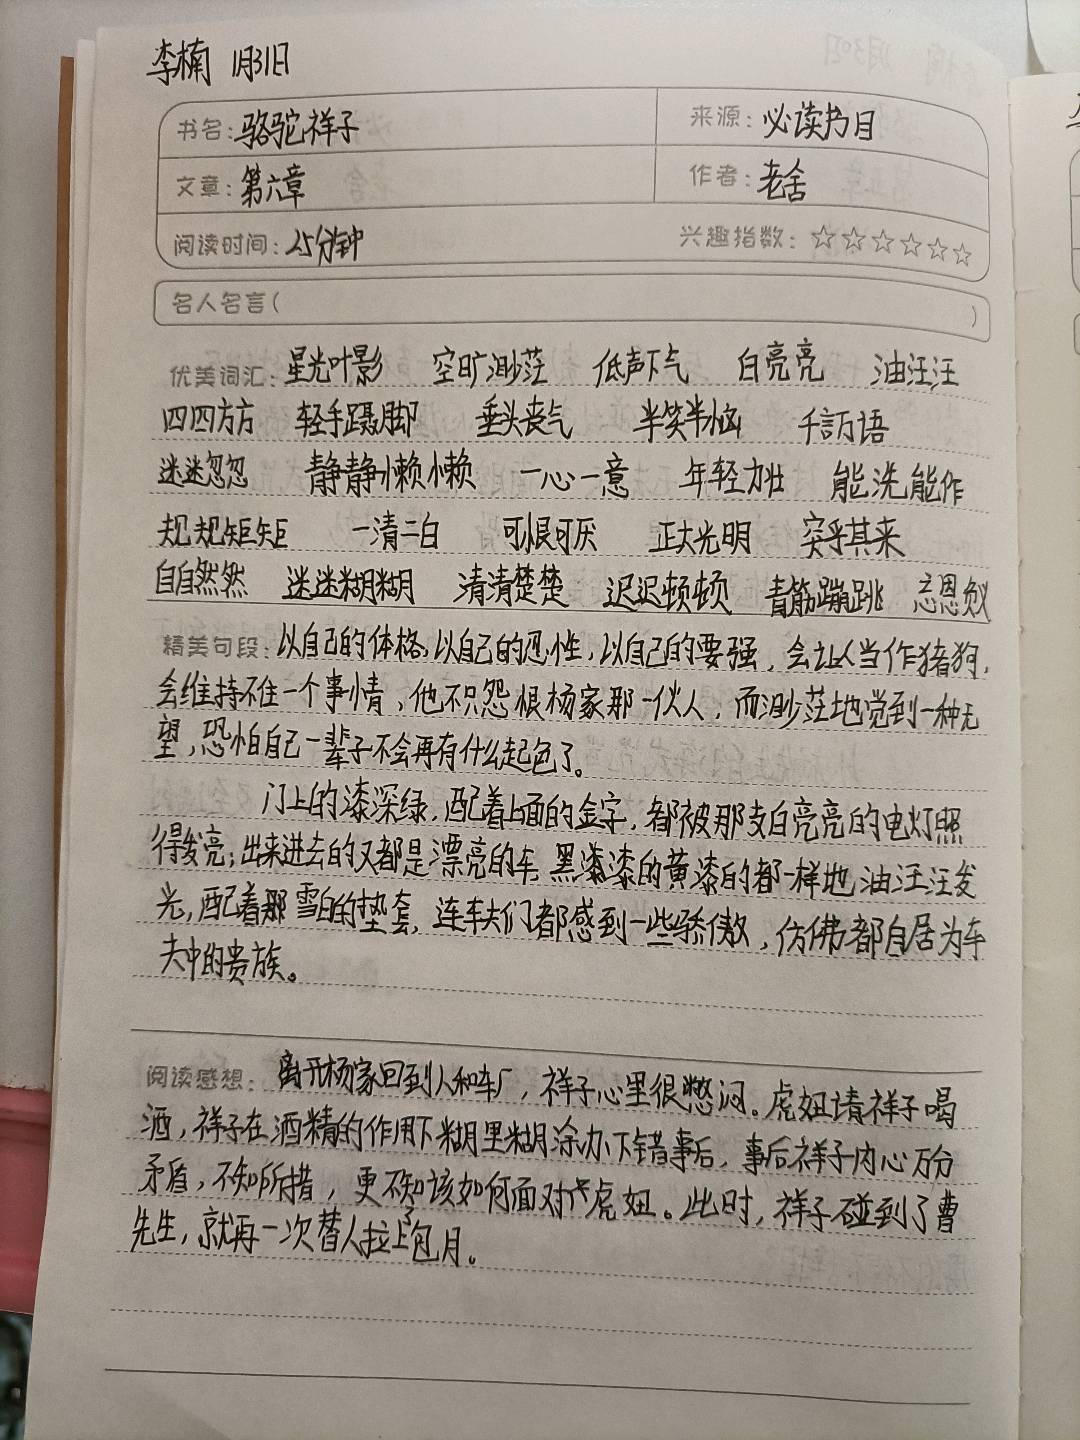 李楠 1月31日
书名: 骆驼祥子 来源: 必读书目
文章: 第六章 作者: 老舍
阅读时间: 25分钟 兴趣指数: ☆☆☆☆☆☆
名人名言( )
优美词汇: 星光叶影 空旷渺茫 低声下气 白亮亮 油汪汪
四四方方 轻手蹑脚 垂头丧气 半笑半恼 千言万语
迷迷忽忽 静静懒懒 一心一意 年轻力壮 能洗能作
规规矩矩 一清二白 可恨可厌 正大光明 突乎其来
自自然然 迷迷糊糊 清清楚楚 迟迟顿顿 青筋蹦跳 忘恩负义
精美句段: 以自己的体格,以自己的忍性,以自己的要强,会让人当作猪狗,
会维持不住一个事情,他不只怨恨杨家那一伙人,而渺茫地觉到一种无
望,恐怕自己一辈子不会再有什么起色了。
门上的漆深绿,配着上面的金字,都被那支白亮亮的电灯照
得发亮;出来进去的又都是漂亮的车,黑漆漆的黄漆的都一样地油汪汪发
光,配着那雪白的垫套,连车夫们都感到一些骄傲,仿佛都自居为车
夫中的贵族。
阅读感想: 离开杨家回到人和车厂,祥子心里很憋闷。虎妞请祥子喝
酒,祥子在酒精的作用下糊里糊涂办下错事后,事后祥子内心万分
矛盾,不知所措,更不知该如何面对虎妞。此时,祥子碰到了曹
先生,就再一次替人拉上了包月。